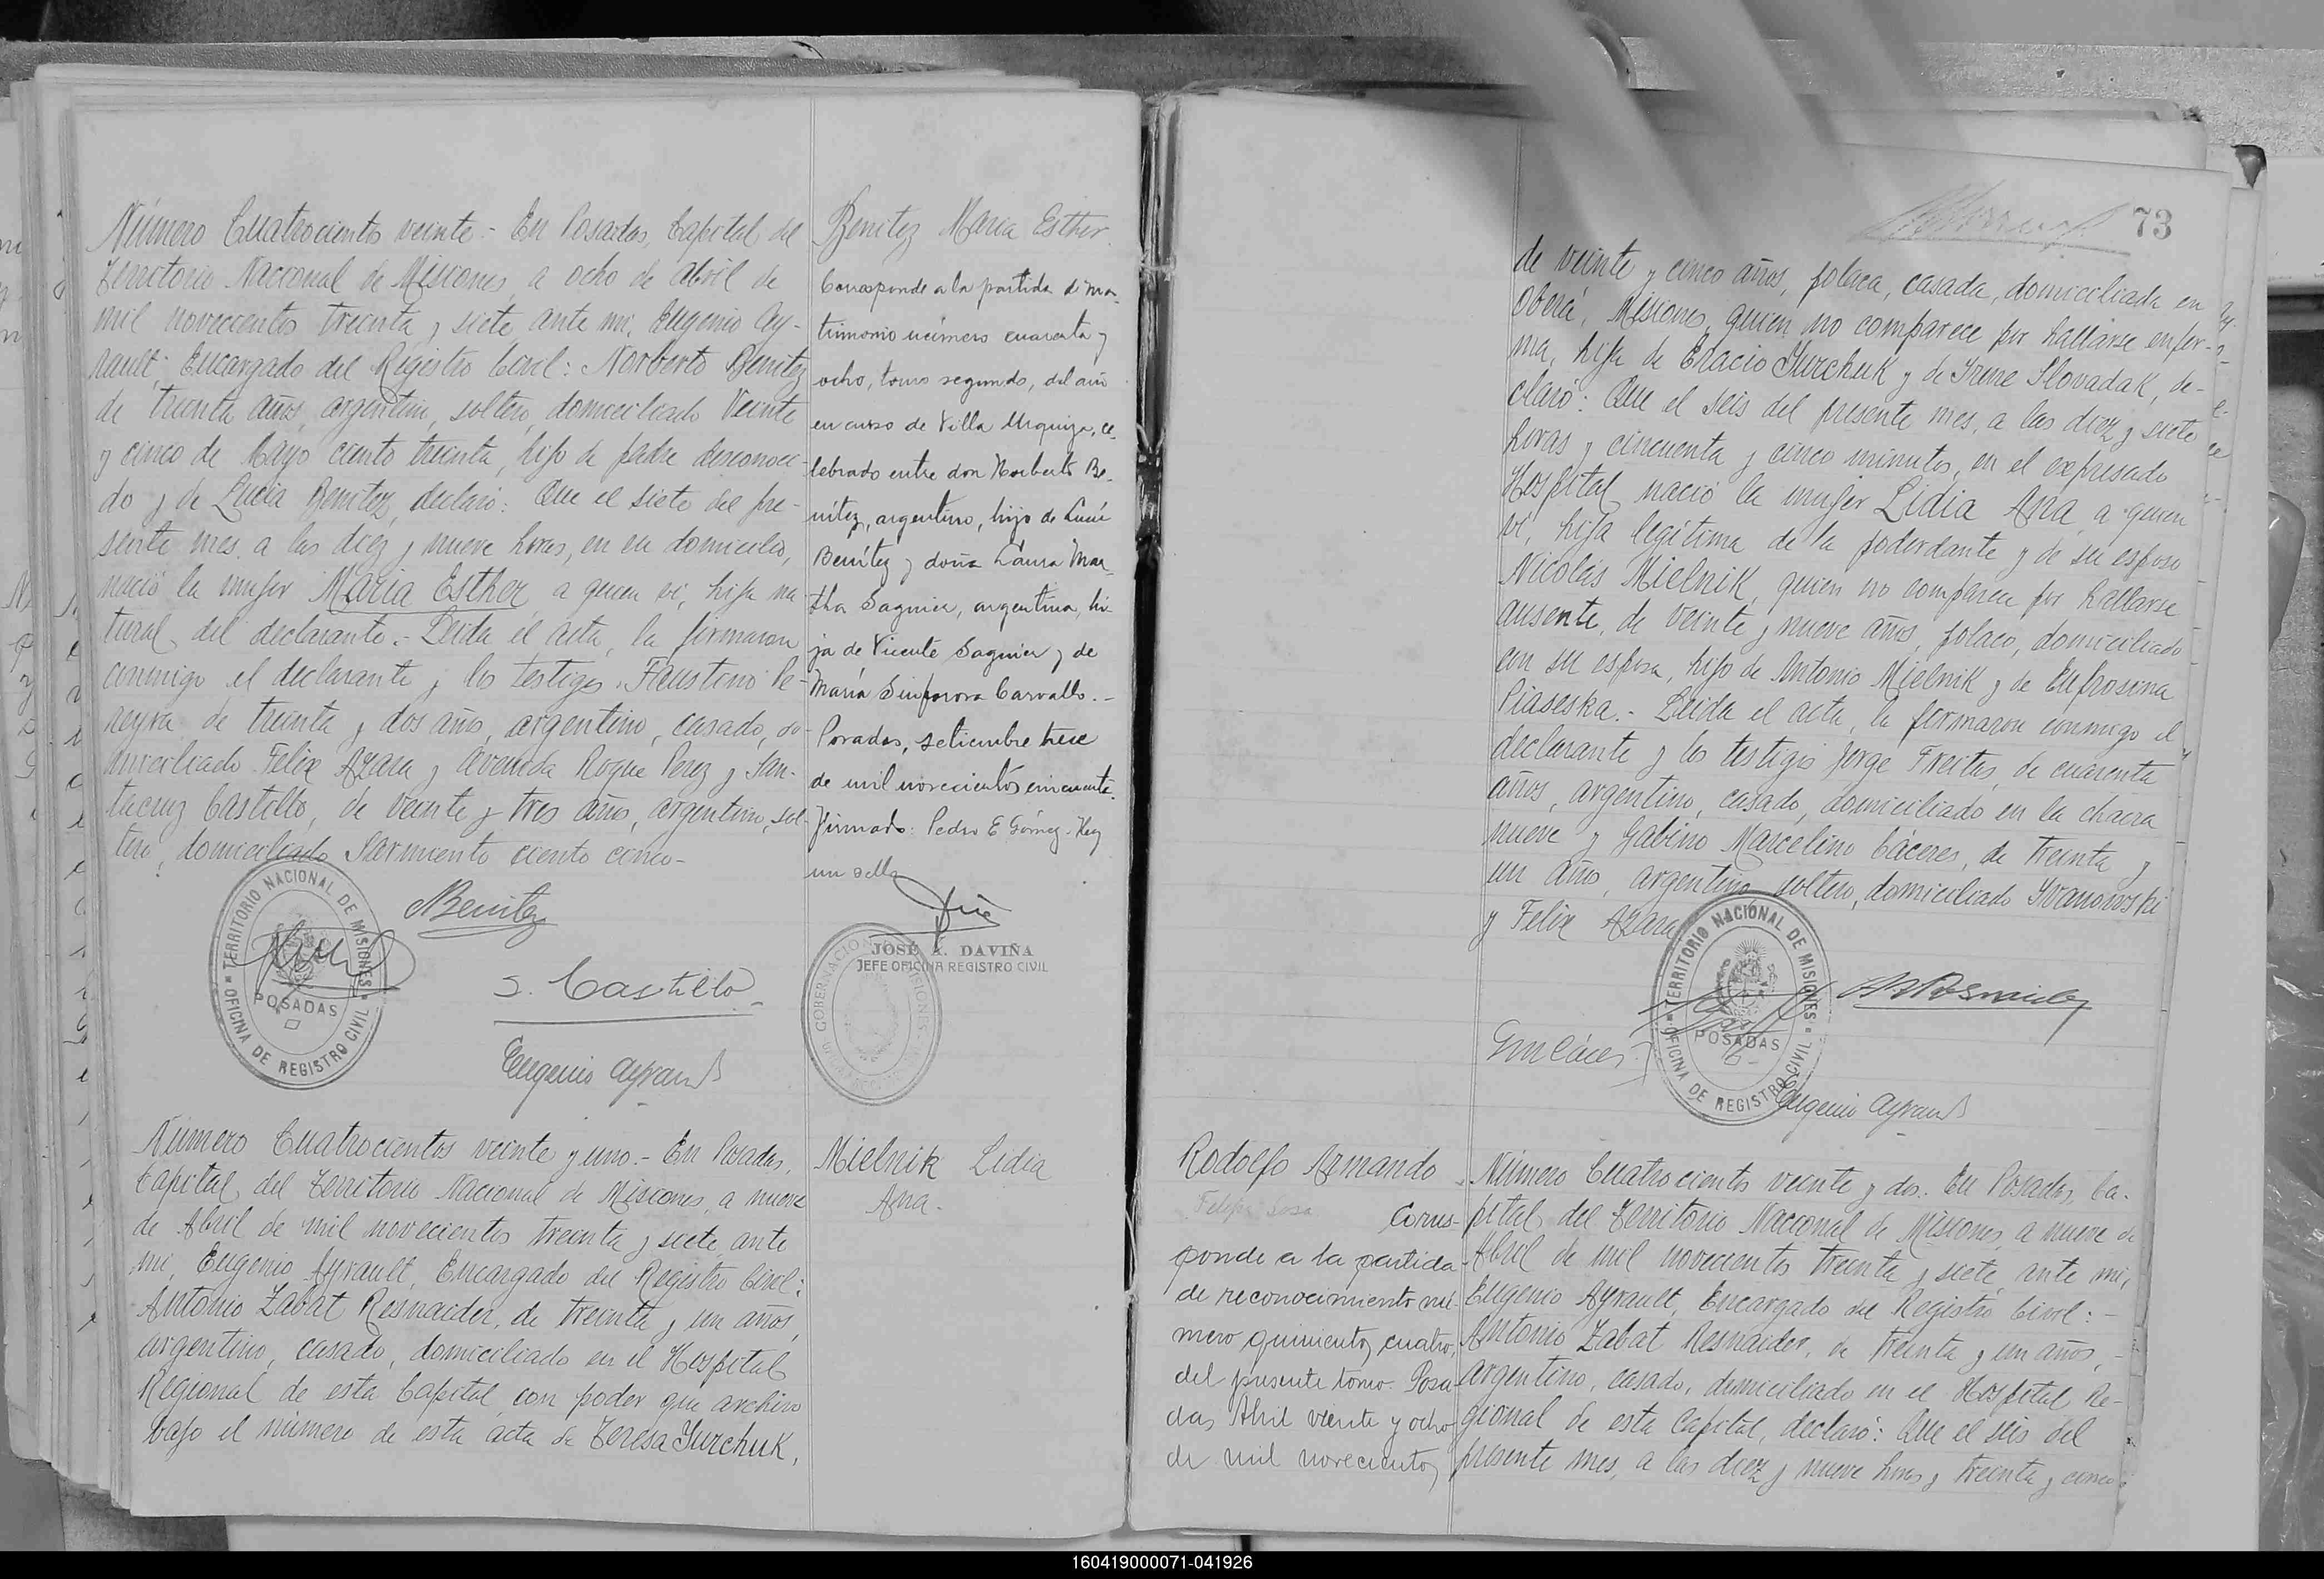 Número Cuatrocientos veinte.- En Posadas, Capital del
Territorio Nacional de Misiones, a ocho de Abril de
mil novecientos treinta y siete, ante mi, Eugenio Ay-
rault, Encargado del Registro Civil: Norberto Benitez
de treinta años, argentino, soltero, domiciliado Veinte
y cinco de Mayo ciento treinta, hijo de padre desconoci-
do y de Lucia Benitez, declaró: Que el siete del pre-
sente mes, a las diez y nueve horas, en su domicilio,
nació la mujer Maria Esther, a quien vi, hija na
tural del declarante.- Leida el acta, la firmaron
conmigo el declarante y los testigos Faustino Pe-
reyra de treinta y dos año, argentino, casado, do-
miciliado Felix Azara y Avenida Roque Perez y San-
tacruz Castillo, de veinte y tres años, argentino, sol-
tero, domiciliado Sarmiento ciento cinco-
TERRITORIO NACIONAL DE MISIONES
POSADAS
OFICINA DE REGISTRO CIVIL
NBenitez
S. Castillo
Eugenio Ayrault
Benitez Maria Esther.
Corresponde a la partida de ma-
trimonio número cuarenta y
ocho, tomo segundo, del año
en curso de Villa Urquiza, ce-
lebrado entre don Norberto Be-
nítez, argentino, hijo de Lucía
Benítez y doña Laura Mar-
tha Sagnier, argentina, hi-
ja de Vicente Sagnier y de
María Sinforosa Carvallo.-
Posadas, setiembre trece
de mil novecientos cincuenta.
Firmado: Pedro E Gómez. Hay
un sello
JOSÉ A. DAVIÑA
JEFE OFICINA REGISTRO CIVIL
Número Cuatrocientos veinte y uno.- En Posadas,
Capital del Territorio Nacional de Misiones, a nueve
de Abril de mil novecientos treinta y siete, ante
mi, Eugenio Ayrault, Encargado del Registro Civil:
Antonio Zabat Resnaider, de treinta y un años,
argentino, casado, domiciliado en el Hospital
Regional de esta Capital, con poder que archivo
bajo el número de esta acta de Teresa Jurchuk,
Mielnik Lidia
Ana.
73
de veinte y cinco años, polaca, casada, domiciliada en
Oberá, Misiones, quien no comparece por hallarse enfer-
ma, hija de Eracio Jurchuk y de Irene Slovadak, de-
claró: Que el seis del presente mes, a las diez y siete
horas y cincuenta y cinco minutos, en el expresado
Hospital, nació la mujer Lidia Ana, a quien
vi, hija legítima de la poderdante y de su esposo
Nicolás Mielnik, quien no comparece por hallarse
ausente, de veinte y nueve años, polaco, domiciliado
con su esposa, hijo de Antonio Mielnik y de Eufrosina
Piaseska.- Leida el acta, la firmaron conmigo el
declarante y los testigos Jorge Freites, de cuarenta
años, argentino, casado, domiciliado en la chacra
nueve y Gabino Marcelino Cáceres, de treinta y
un año, argentino, soltero, domiciliado Ivanowski
y Felix Azara
TERRITORIO NACIONAL DE MISIONES
POSADAS
OFICINA DE REGISTRO CIVIL
GMCáceres
Eugenio Ayrault
Rodolfo Armando
Felipe Sosa
Corres-
ponde a la partida
de reconocimiento nú-
mero quinientos cuatro,
del presente tomo. Posa-
das, Abril veinte y ocho
de mil novecientos
Número Cuatrocientos veinte y dos. En Posadas, Ca-
pital del Territorio Nacional de Misiones, a nueve de
Abril de mil novecientos treinta y siete, ante mi,
Eugenio Ayrault, Encargado del Registro Civil:-
Antonio Zabat Resnaider, de treinta y un años,-
argentino, casado, domiciliado en el Hospital Re-
gional de esta Capital, declaró: Que el seis del
presente mes, a las diez y nueve horas y treinta y cinco
160419000071-041926